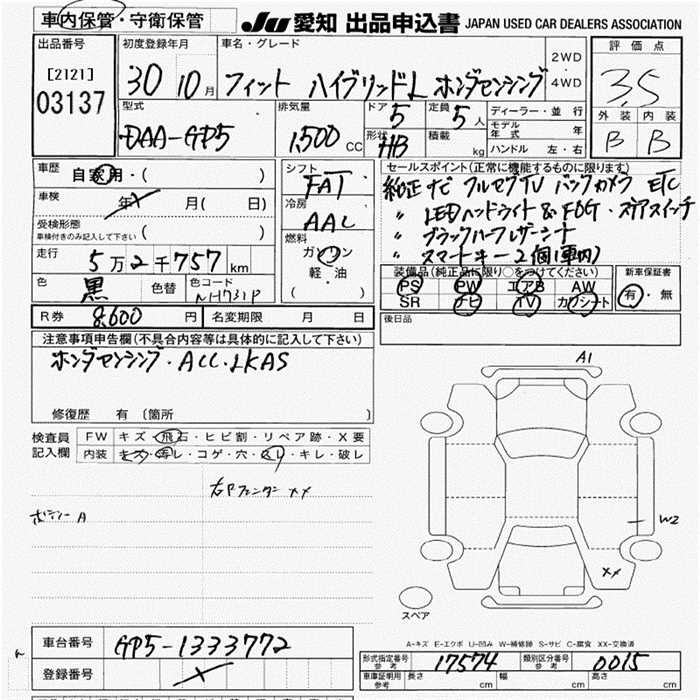 車内保管・守衛保管
JU 愛知 出品申込書 JAPAN USED CAR DEALERS ASSOCIATION
出品番号
[2121]
03137
初度登録年月
30 10月
車名・グレード
フィット ハイブリッドL ホンダセンシング
2WD・4WD
評価点
3.5
外装 内装
B B
型式
DAA-GP5
排気量
1,500 CC
ドア 5
形状 HB
定員 5人
積載 kg
ディーラー・並行
モデル年式 年
ハンドル 左・右
車歴 自家用・( )
車検 年 月( 日)
受検形態
車検付きのみ記入して下さい ( )
走行 5万2千757km
色 黒 色替 色コード NH731P
シフト FAT
冷房 AAC
燃料
ガソリン
軽・油
( )
セールスポイント(正常に機能するものに限ります)
純正ナビ フルセグTV バックカメラ ETC
〃 LEDヘッドライト&FOG・ステアスイッチ
〃 ブラックハーフレザーシート
〃 スマートキー2個(車内)
装備品(純正品に限り○をつけてください)
PS PW エアB AW
SR ナビ TV カワシート
新車保証書
有・無
R券 8,600円 名変期限 月 日
後日品
注意事項申告欄(不具合内容等は具体的に記入して下さい)
ホンダセンシング・ACC・LKAS
修復歴 有〔箇所 〕
検査員記入欄
FW キズ・飛石・ヒビ割・リペア跡・X要
内装 キズ・汚レ・コゲ・穴・スレ・キレ・破レ
右Fフェンダー XX
ボデー A
A1
W2
XX
スペア
A-キズ E-エクボ U-凹み W-補修跡 S-サビ C-腐食 XX-交換済
車台番号 GP5-1333772
登録番号
形式指定番号 参考 17574 類別区分番号 参考 0015
車庫証明用 参考 長さ cm 幅 cm 高さ cm